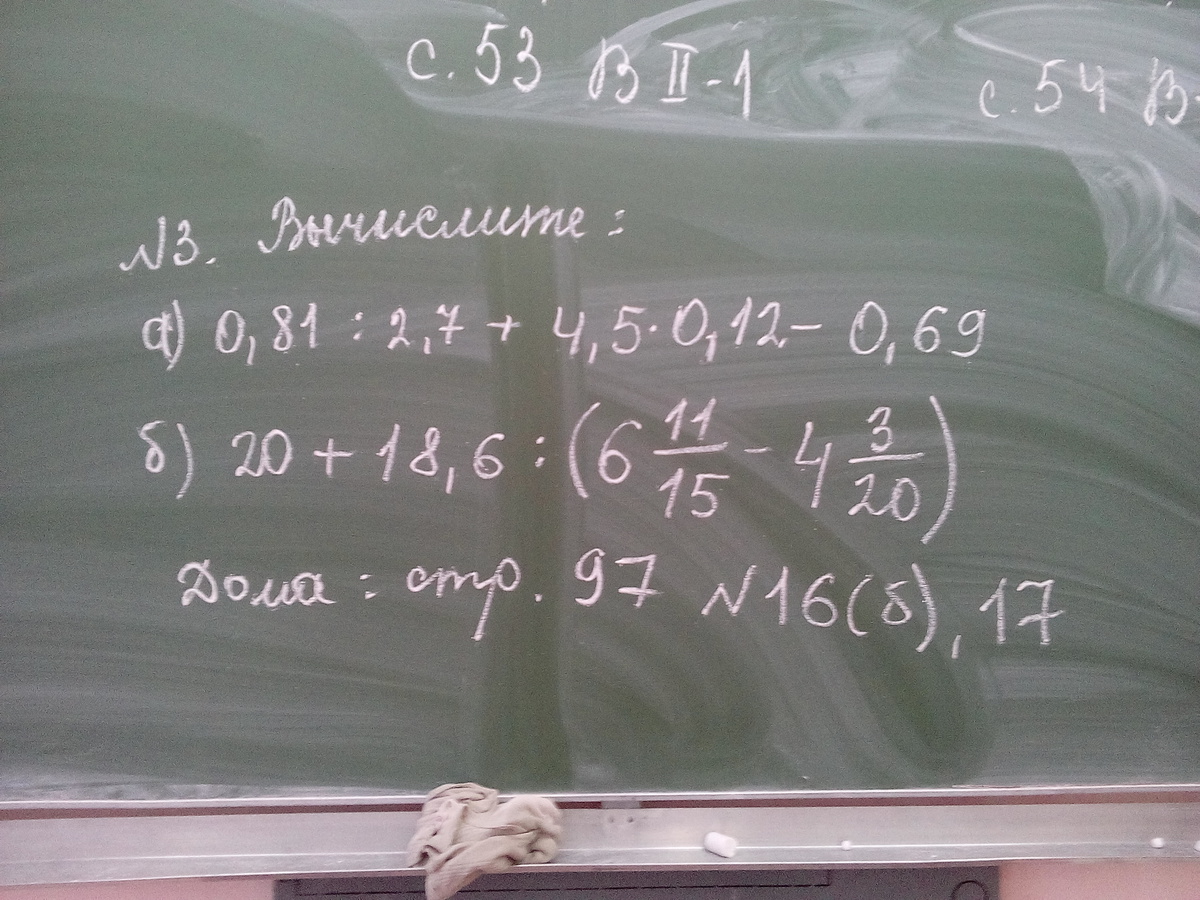 с. 53 В II-1
с. 54 В-
№3. Вычислите:
а) 0,81 : 2,7 + 4,5·0,12 - 0,69
б) 20 + 18,6 : (6 11/15 - 4 3/20)
Дома: стр. 97 №16(б), 17